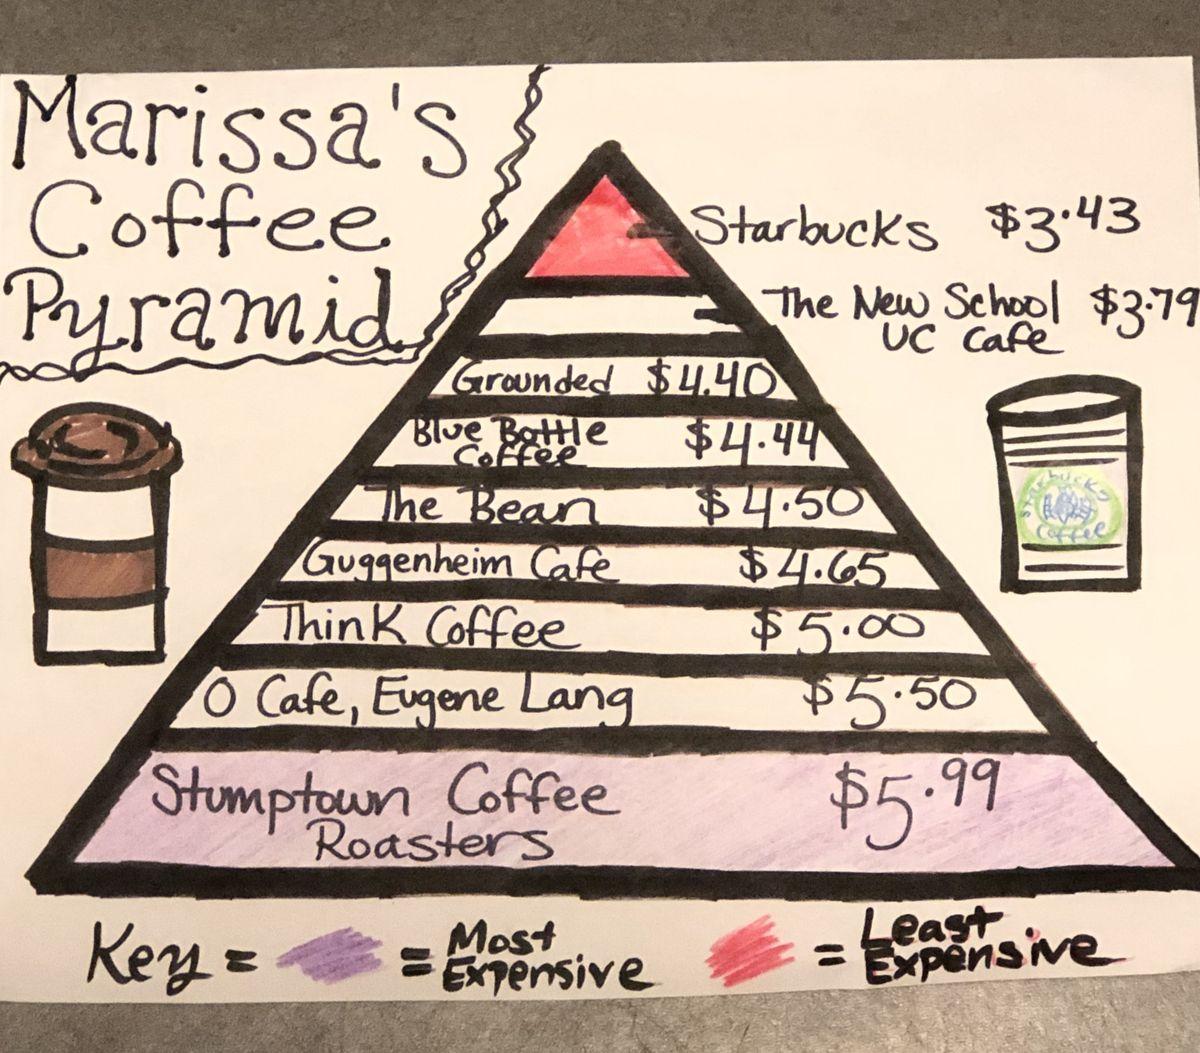 Marissa's
Coffee
Pyramid
Starbucks $3.43
The New School $3.79
UC Cafe
Grounded $4.40
Blue Bottle $4.44
Coffee
The Bean $4.50
Guggenheim Cafe $4.65
Think Coffee $5.00
O Cafe, Eugene Lang $5.50
Stumptown Coffee $5.99
Roasters
Starbucks
Coffee
Key = = Most
Expensive
= Least
Expensive